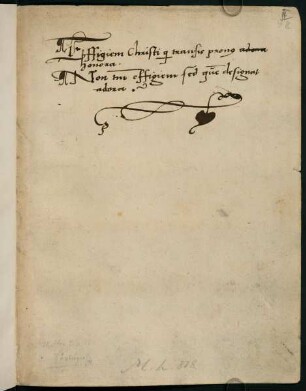 Effigiem Christi q transis prono adora
honora.
Non tn̄ effigiem sed quē designat
adora.